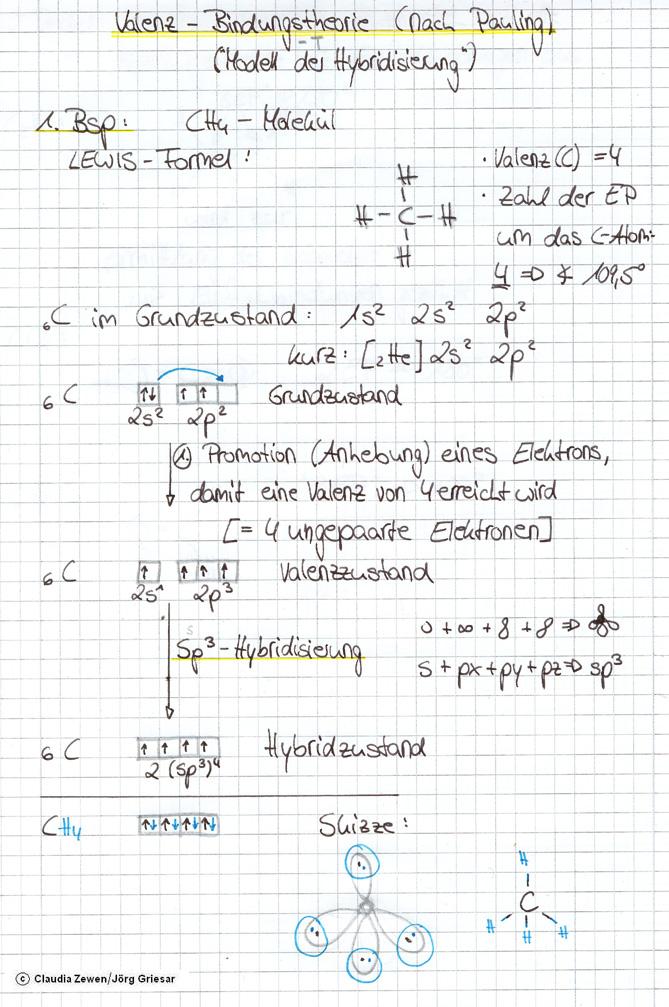 Valenz - Bindungstheorie (nach Pauling)
("Modell der Hybridisierung")
1. Bsp: CH4 - Molekül
LEWIS - Formel:
H
H - C - H
H
· Valenz(C) = 4
· Zahl der EP
um das C-Atom:
4 ⇒ ∢ 109,5°
₆C im Grundzustand: 1s² 2s² 2p²
kurz: [₂He] 2s² 2p²
6 C ↑↓ ↑ ↑ Grundzustand
2s² 2p²
① Promotion (Anhebung) eines Elektrons,
damit eine Valenz von 4 erreicht wird
[= 4 ungepaarte Elektronen]
6 C ↑ ↑ ↑ ↑ Valenzzustand
2s¹ 2p³
Sp³-Hybridisierung
o + ∞ + 8 + 8 ⇒
s + px + py + pz ⇒ sp³
6 C ↑ ↑ ↑ ↑ Hybridzustand
2 (sp³)⁴
CH4 ↑↓ ↑↓ ↑↓ ↑↓ Skizze:
H
C
H H H
© Claudia Zewen/Jörg Griesar